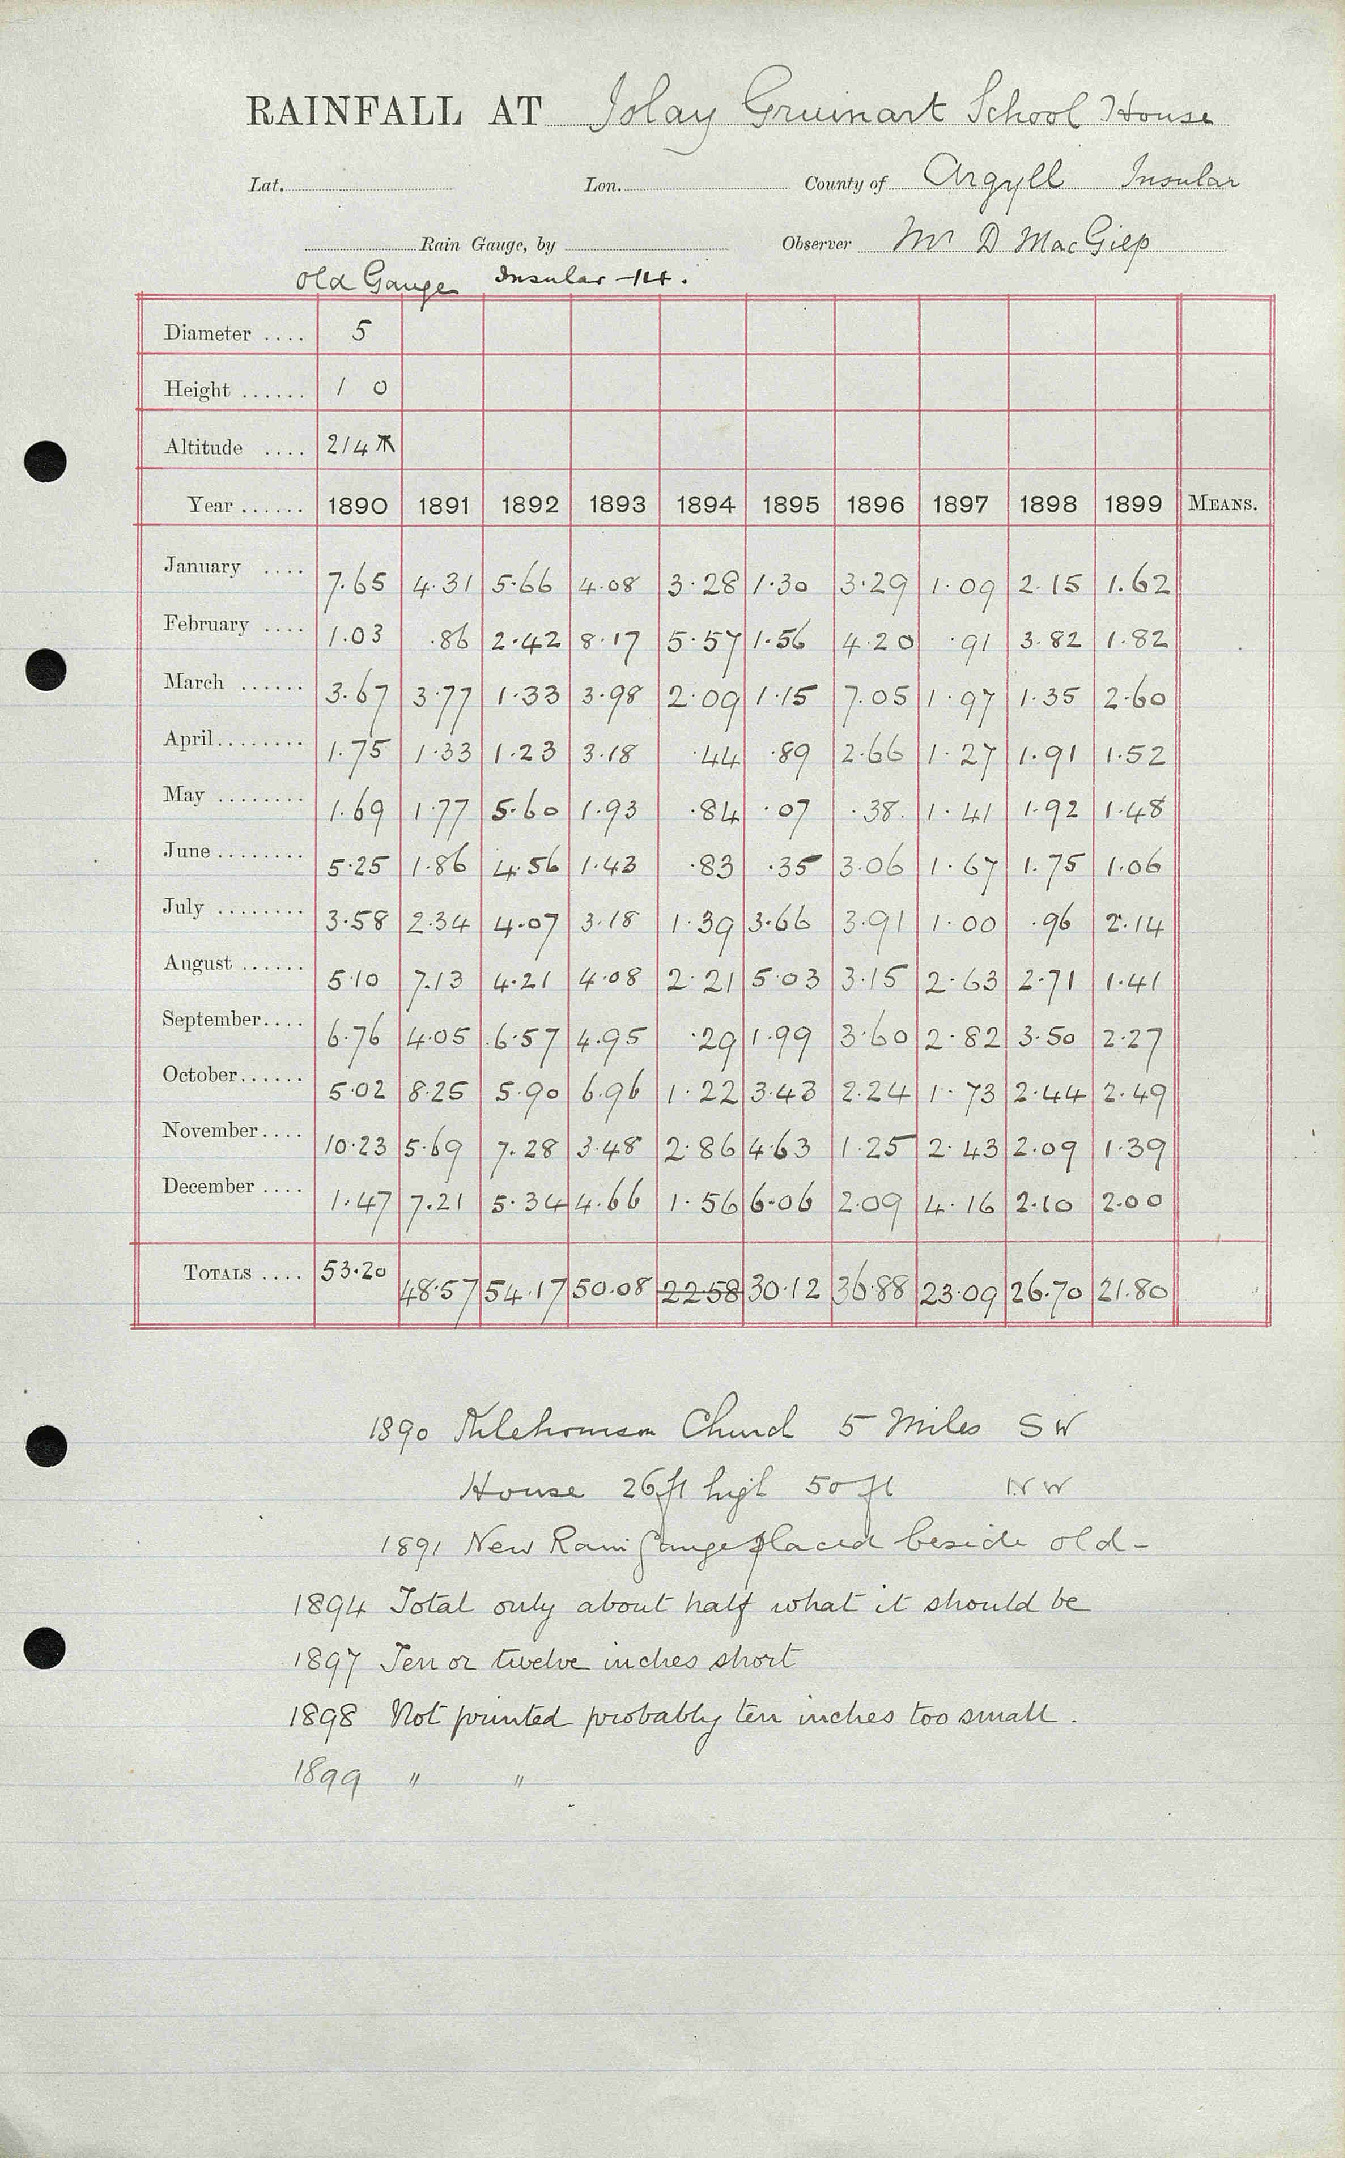 RAINFALL AT Islay Gruinart School House
Lat. Lon. County of Argyll Insular
Rain Gauge, by Observer Mr D MacGilp
Old Gauge Insular - 14.
Diameter .... 5
Height ...... 1 0
Altitude .... 214
Year ...... 1890 1891 1892 1893 1894 1895 1896 1897 1898 1899 MEANS.
January .... 7.65 4.31 5.66 4.08 3.28 1.30 3.29 1.09 2.15 1.62
February .... 1.03 .86 2.42 8.17 5.57 1.56 4.20 .91 3.82 1.82
March ...... 3.67 3.77 1.33 3.98 2.09 1.15 7.05 1.97 1.35 2.60
April ........ 1.75 1.33 1.23 3.18 .44 .89 2.66 1.27 1.91 1.52
May ........ 1.69 1.77 5.60 1.93 .84 .07 .38 1.41 1.92 1.48
June ........ 5.25 1.86 4.56 1.43 .83 .35 3.06 1.67 1.75 1.06
July ........ 3.58 2.34 4.07 3.18 1.39 3.66 3.91 1.00 .96 2.14
August ...... 5.10 7.13 4.21 4.08 2.21 5.03 3.15 2.63 2.71 1.41
September .... 6.76 4.05 6.57 4.95 .29 1.99 3.60 2.82 3.50 2.27
October ...... 5.02 8.25 5.90 6.96 1.22 3.43 2.24 1.73 2.44 2.49
November .... 10.23 5.69 7.28 3.48 2.86 4.63 1.25 2.43 2.09 1.39
December .... 1.47 7.21 5.34 4.66 1.56 6.06 2.09 4.16 2.10 2.00
TOTALS .... 53.20 48.57 54.17 50.08 22.58 30.12 36.88 23.09 26.70 21.80
1890 Church 5 Miles SW
House 26 ft high 50 ft NW
1891 New Rain Gauge placed beside old -
1894 Total only about half what it should be
1897 Ten or twelve inches short
1898 Not printed probably ten inches too small.
1899 " "